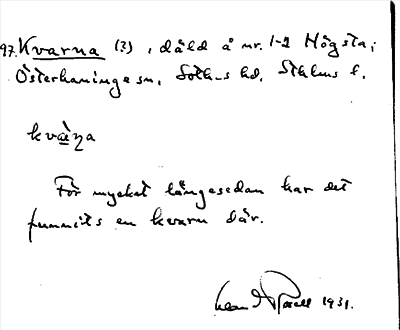 97. Kvarna (3), däld å nr. 1-2 Högsta;
Österhaninge sn, Soth-s hd, Sthlms l.
kvà̤ṇa
För mycket längesedan har det
funnits en kvarn där.
1931.